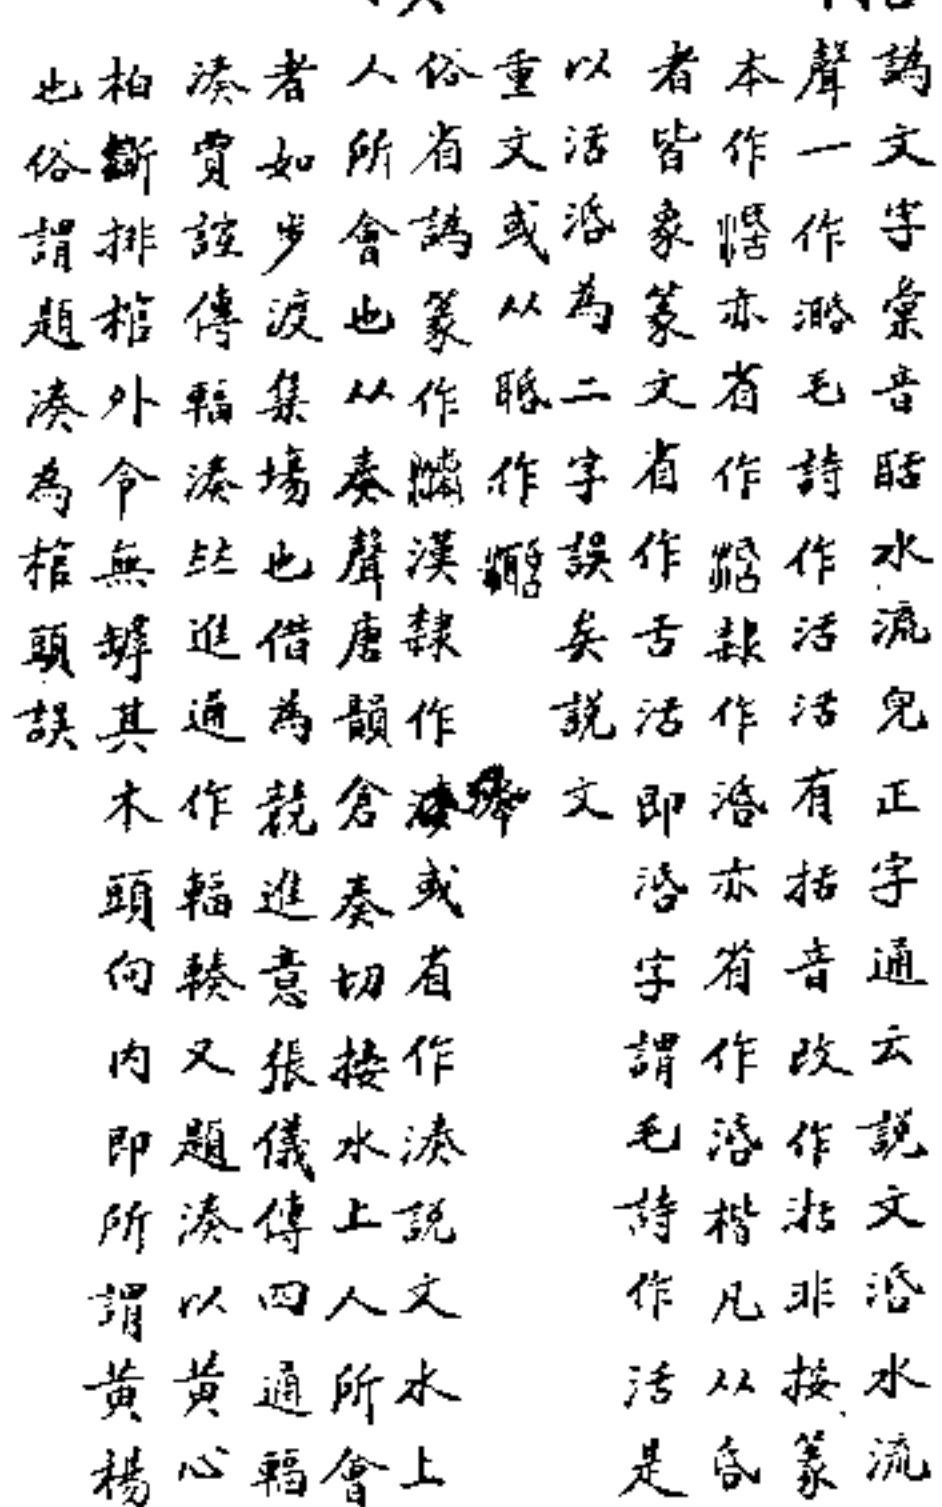 譌文字彙音聒水流皃正字通云説文湉水流
聲一作濶毛詩作活活有括音改作湉非按篆
本作亦省作隸作湉亦省作湉楷凡从昏
者皆象篆文省作舌活即湉字謂毛詩作活是
以活湉為二字誤矣説文
重文或从聒作
俗省譌篆作漢隸作湊或省作湊説文水上
人所會也从奏聲唐韻倉奏切按水上人所會
者如步渡集場也借為競進意張儀傳四通輻
湊賈誼傳輻湊竝進通作輻輳又題湊以黄心
柏斷排棺外令無罅其木頭向内即所謂黄楊
也俗謂題湊為棺頭誤